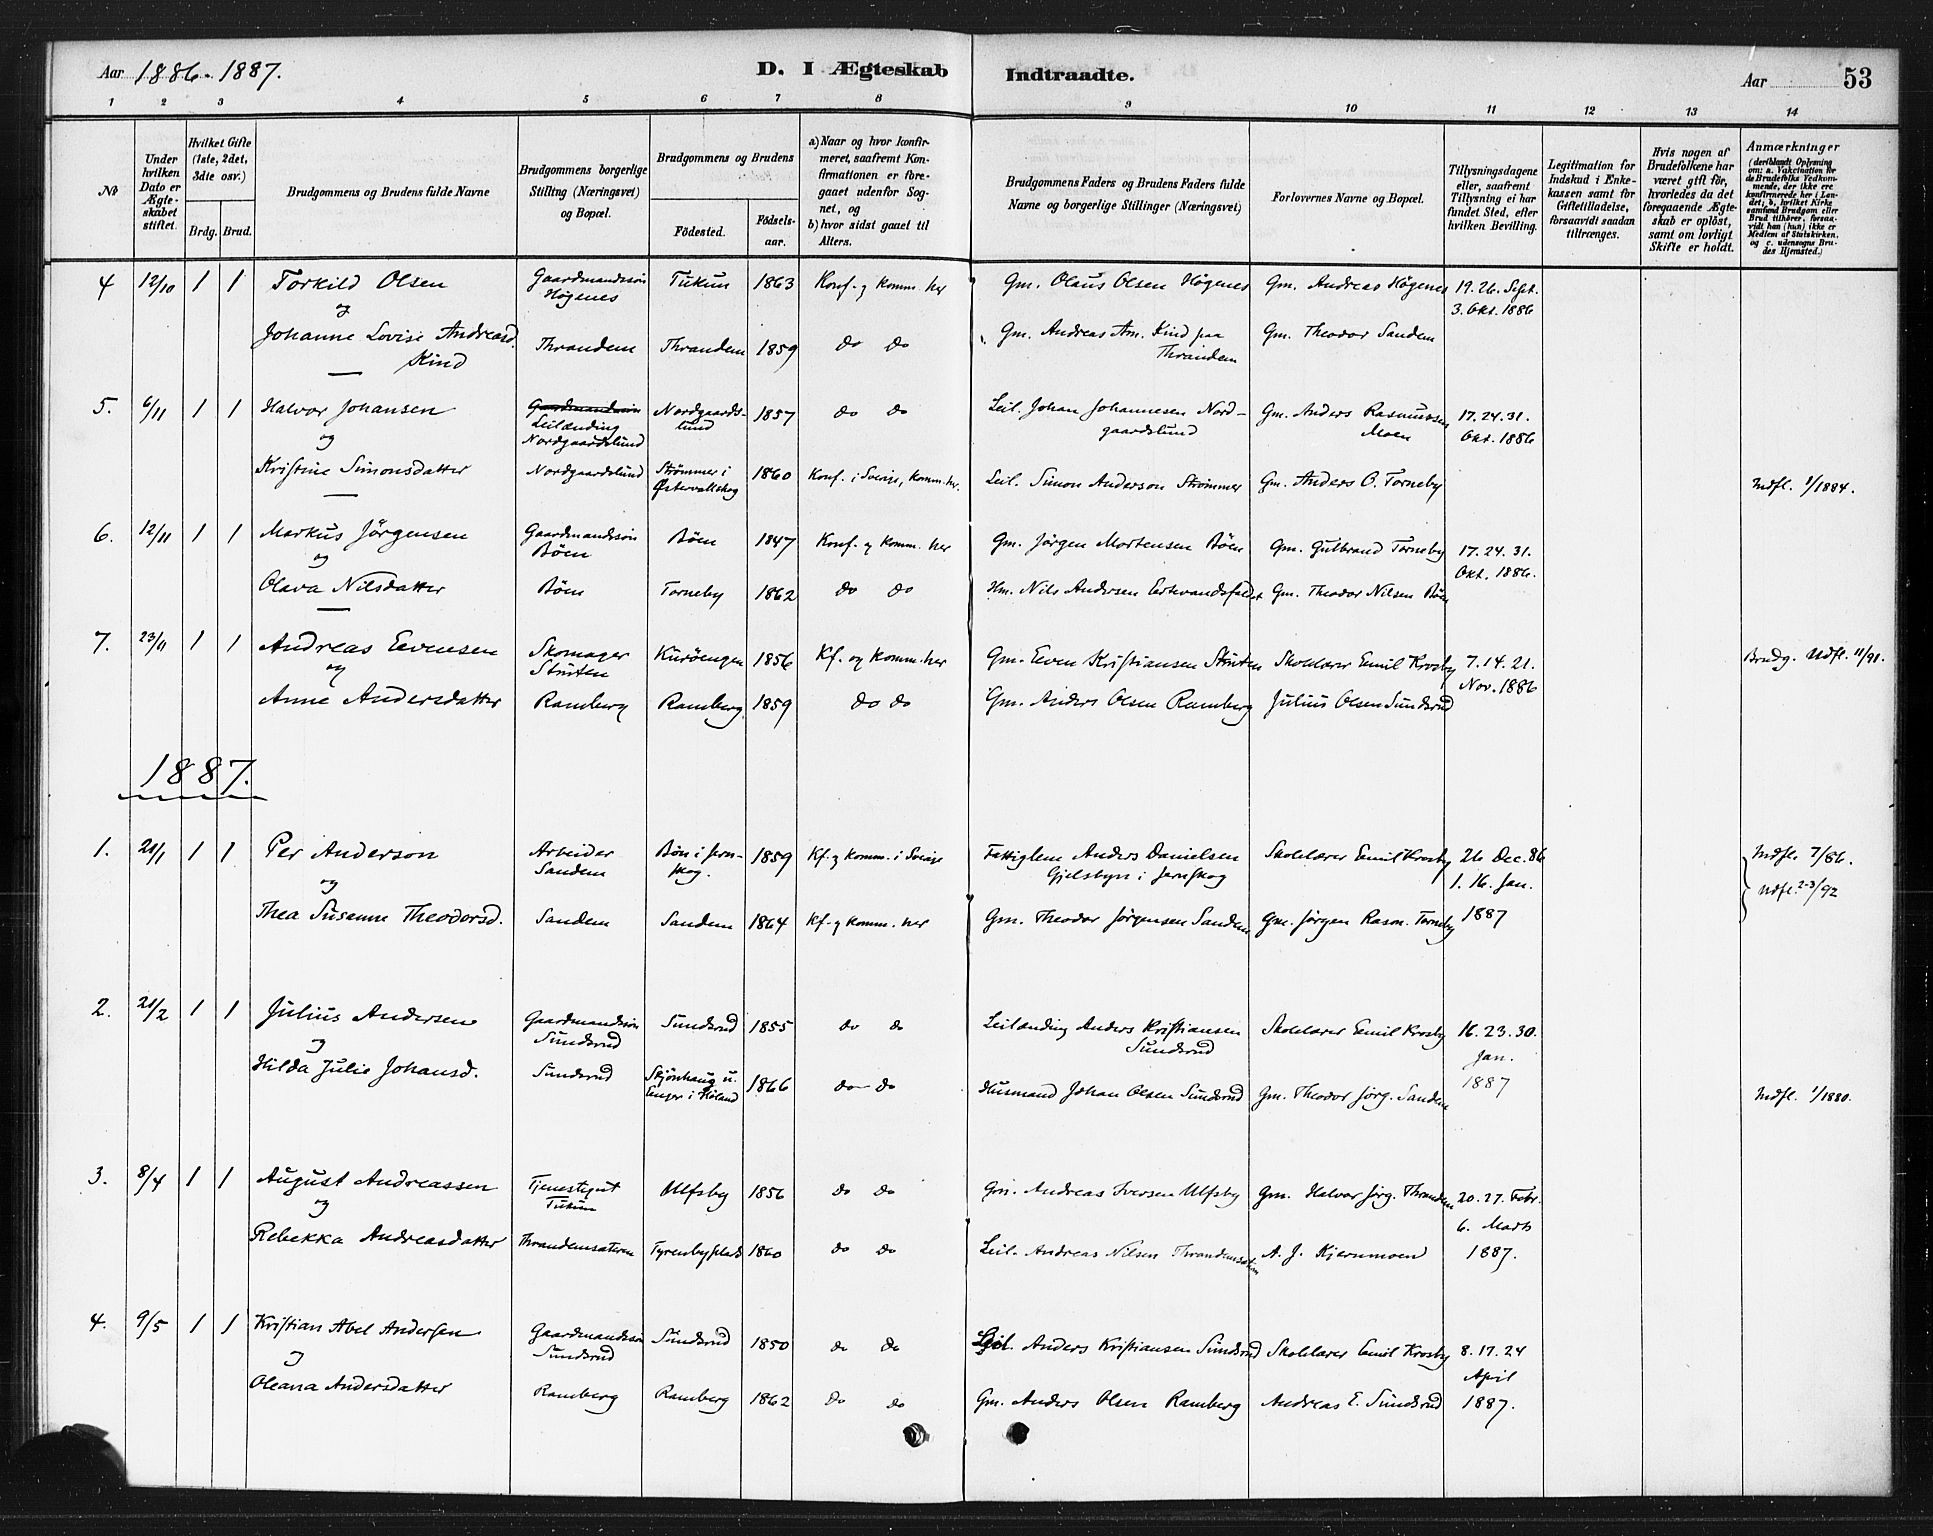 Aar 1886-1887.
D. I Ægteskab Indtraadte.
Aar 53
1 2 3 4 5 6 7 8 9 10 11 12 13 14
No
Under hvilken Dato er Ægteskabet stiftet.
Hvilket Gifte (1ste, 2det, 3dte osv.)
Brdg. Brud.
Brudgommens og Brudens fulde Navne
Brudgommens borgerlige Stilling (Næringsvei) og Bopæl.
Brudgommens og Brudens
Fødested.
Fødsels-aar.
a) Naar og hvor konfirmeret, saafremt Konfirmationen er foregaaet udenfor Sognet, og
b) hvor sidst gaaet til Alters.
Brudgommens Faders og Brudens Faders fulde Navne og borgerlige Stillinger (Næringsvei)
Forlovernes Navne og Bopæl.
Tillysningsdagene eller, saafremt Tillysning ei har fundet Sted, efter hvilken Bevilling.
Legitimation for Indskud i Enkekassen samt for Giftetilladelse, forsaavidt saadan tiltrænges.
Hvis nogen af Brudefolkene har været gift før, hvorledes da det foregaaende Ægteskab er opløst, samt om lovligt Skifte er holdt.
Anmærkninger
(deriblandt Oplysning om: a. Vakcination for de Brudefolks Vedkommende, der ikke ere konfirmerede her i Landet; b. hvilket Kirkesamfund Brudgom eller Brud tilhører, forsaavidt han (hun) ikke er Medlem af Statskirken, og c. udensogns Brudes Hjemsted.)
4 12/10 1 1 Torkild Olsen Gaardmandssøn Høgenes Tukun 1863 Konf. og komm. her Gm. Olaus Olsen Høgenes Gm. Andreas Høgenes 19. 26. Sept. 3. Okt. 1886
og
Johanne Lovise Andreasd. Kind Thrandem Thrandem 1859 do do Gm. Andreas Am. Kind paa Thrandem Gm. Theodor Sandem
5. 6/11 1 1 Halvor Johansen Gaardmandssøn Leilænding Nordgaardslund Nordgaardslund 1857 do do Leil. Johan Johannesen Nordgaardslund Gm. Anders Rasmussen Moen 17. 24. 31. Okt. 1886
og
Kristine Simonsdatter Nordgaardslund Strømmer i Østervallskog 1860 Konf. i Sverige, komm. her. Leil. Simon Anderson Strømmer Gm. Anders O. Torneby Indfl. 1/1884.
6. 12/11 1 1 Markus Jørgensen Gaardmandssøn Böen Böen 1847 Konf. og komm. her Gm. Jørgen Mortensen Böen Gm. Gulbrand Torneby 17. 24. 31. Okt. 1886.
og
Olava Nilsdatter Böen Torneby 1862 do do Hm. Nils Andersen Gm. Theodor Nilsen Böen
7. 23/11 1 1 Andreas Evensen Skomager Struten Kuröengen 1856 Kf. og komm. her Gm. Even Kristiansen Struten Skolelærer Emil Krosby 7. 14. 21. Nov. 1886 Brudg. Udfl. 11/91.
og
Anne Andersdatter Ramberg Ramberg 1859 do do Gm. Anders Olsen Ramberg Julius Olsen Sundsrud
1887.
1. 21/1 1 1 Per Anderson Arbeider Sandem Bön i Jernskog. 1859 Kf. og komm. i Sverige Fattiglem Anders Danielsen Gjelsbyn i Jernskog Skolelærer Emil Krosby 26 Dec. 86 1. 16. Jan. 1887 Indfl. 7/86. Udfl. 2-3/92
og
Thea Susanne Theodorsd. Sandem Sandem 1864 Kf. og komm. her Gm. Theodor Jørgensen Sandem Gm. Jørgen Rasm. Torneby
2. 21/2 1 1 Julius Andersen Gaardmandssøn Sundsrud Sundsrud 1855 do do Leilænding Anders Kristiansen Sundsrud Skolelærer Emil Krosby 16. 23. 30. Jan. 1887
og
Hilda Julie Johansd. Sundsrud Skjønhaug u. Enger i Høland 1866 do do Husmand Johan Olsen Sundsrud Gm. Theodor Jørg. Sandem Indfl. 1/1880.
3. 8/4 1 1 August Andreassen Tjenestegut Tukun Ulfsby 1856 do do Gm. Andreas Iversen Ulfsby Gm. Halvor Jørg. Thrandem 20. 27. Febr. 6. Marts 1887.
og
Rebekka Andreasdatter Thrandemsæteren Tyrenbyplads 1860 do do Leil. Andreas Nilsen Thrandemsæteren A. J. Kjernmoen
4. 9/5 1 1 Kristian Abel Andersen Gaardmandssøn Sundsrud Sundsrud 1850 do do Leil. Anders Kristiansen Sundsrud Skolelærer Emil Krosby 8. 17. 24 April 1887.
og
Oleana Andersdatter Ramberg Ramberg 1862 do do Gm. Anders Olsen Ramberg Andreas E. Sundsrud